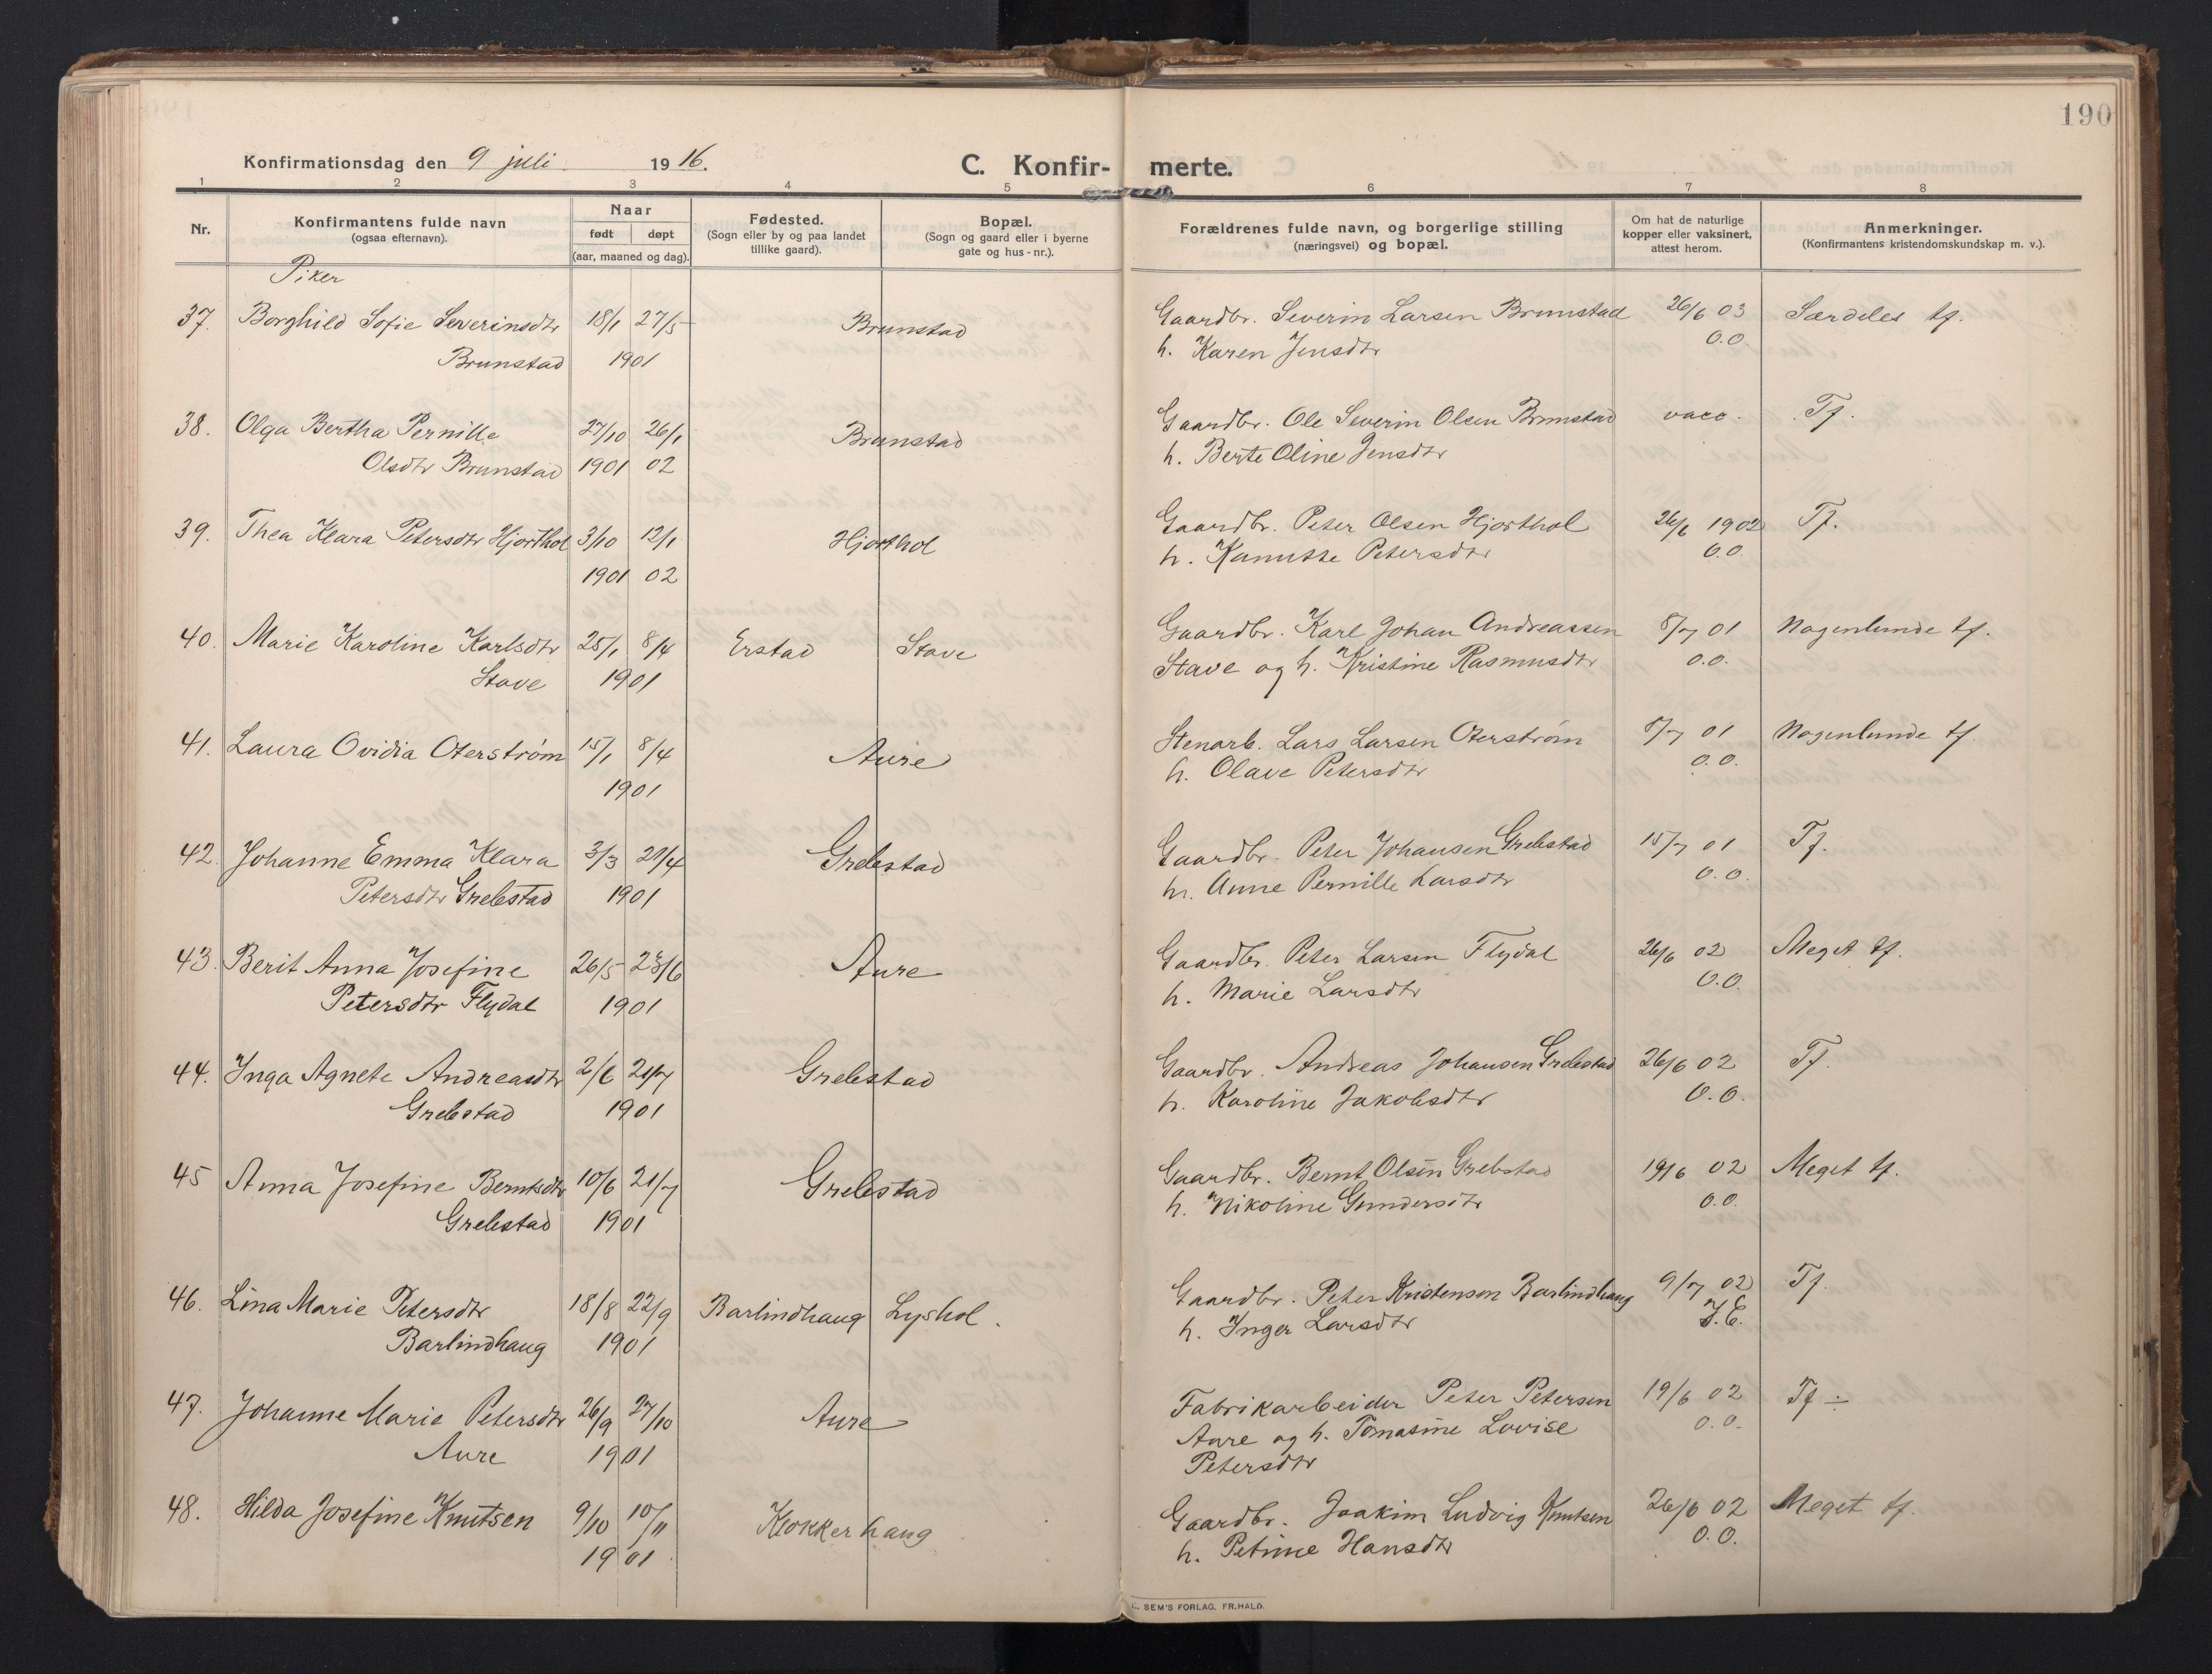 190
Konfirmationsdag den 9 juli. 1916.
C. Konfir- merte.
1 2 3 4 5 6 7 8
Nr.
Konfirmantens fulde navn
(ogsaa efternavn).
Naar
født døpt
(aar, maaned og dag).
Fødested.
(Sogn eller by og paa landet
tillike gaard).
Bopæl.
(Sogn og gaard eller i byerne
gate og hus-nr.).
Forældrenes fulde navn, og borgerlige stilling
(næringsvei) og bopæl.
Om hat de naturlige
kopper eller vaksinert,
attest herom.
Anmerkninger.
(Konfirmantens kristendomskundskap m. v.).
Piker
37. Borghild Sofie Severinsdtr 18/1 27/5 Brunstad Gaardbr. Severin Larsen Brunstad 26/6 03 Særdeles tf.
Brunstad 1901 h. Karen Jensdtr O.O
38. Olga Bertha Pernille 27/10 26/1 Brunstad Gaardbr. Ole Severin Olsen Brunstad vacc. Tf.
Olsdtr Brunstad 1901 02 h. Berte Oline Jensdtr
39. Thea Klara Petersdtr Hjorthol 3/10 12/1 Hjorthol Gaardbr. Peter Olsen Hjorthol 26/6 1902 Tf.
1901 02 h. Kanutte Petersdtr O.O.
40. Marie Karoline Karlsdtr 25/1 8/4 Erstad Stave Gaardbr. Karl Johan Andreassen 8/7 01 Nogenlunde tf.
Stave 1901 Stave og h. Kristine Rasmusdtr O.O.
41. Laura Ovidia Oterstrøm 15/1 8/4 Aure Stenarb. Lars Larsen Oterstrøm 8/7 01 Nogenlunde tf.
1901 h. Olave Petersdtr O.O.
42. Johanne Emma Klara 3/3 21/4 Grebstad Gaardbr. Peter Johansen Grebstad 15/7 01 Tf.
Petersdtr Grebstad 1901 h. Anne Pernille Larsdtr O.O.
43. Berit Anna Josefine 26/5 23/6 Aure Gaardbr. Peter Larsen Flydal 26/6 02 Meget tf.
Petersdtr Flydal 1901 h. Marie Larsdtr O.O.
44. Inga Agnete Andreasdtr 2/6 21/7 Grebstad Gaardbr. Andreas Johansen Grebstad 26/6 02 Tf.
Grebstad 1901 h. Karoline Jakobsdtr O.O.
45 Anna Josefine Berntsdtr 10/6 21/7 Grebstad Gaardbr. Bernt Olsen Grebstad 19/6 02 Meget tf.
Grebstad 1901 h. Nikoline Gundersdtr O.O.
46. Lina Marie Petersdtr 18/8 22/9 Barlindhaug Lyshol. Gaardbr. Peter Kristensen Barlindhaug 9/7 02 Tf.
Barlindhaug 1901 h. Inger Larsdtr J.E.
47. Johanne Marie Petersdtr 26/9 27/10 Aure Fabrikarbeider Peter Petersen 19/6 02 Tf ÷
Aure 1901 Aure og h. Tomasine Lovise O.O.
Petersdtr
48. Hilda Josefine Knutsen 9/10 10/11 Klokkerhaug Gaardbr. Joakim Ludvig Knutsen 26/6 02 Meget tf.
1901 h. Petrine Hansdtr O.O.
SEM'S FORLAG. FR.HALD.